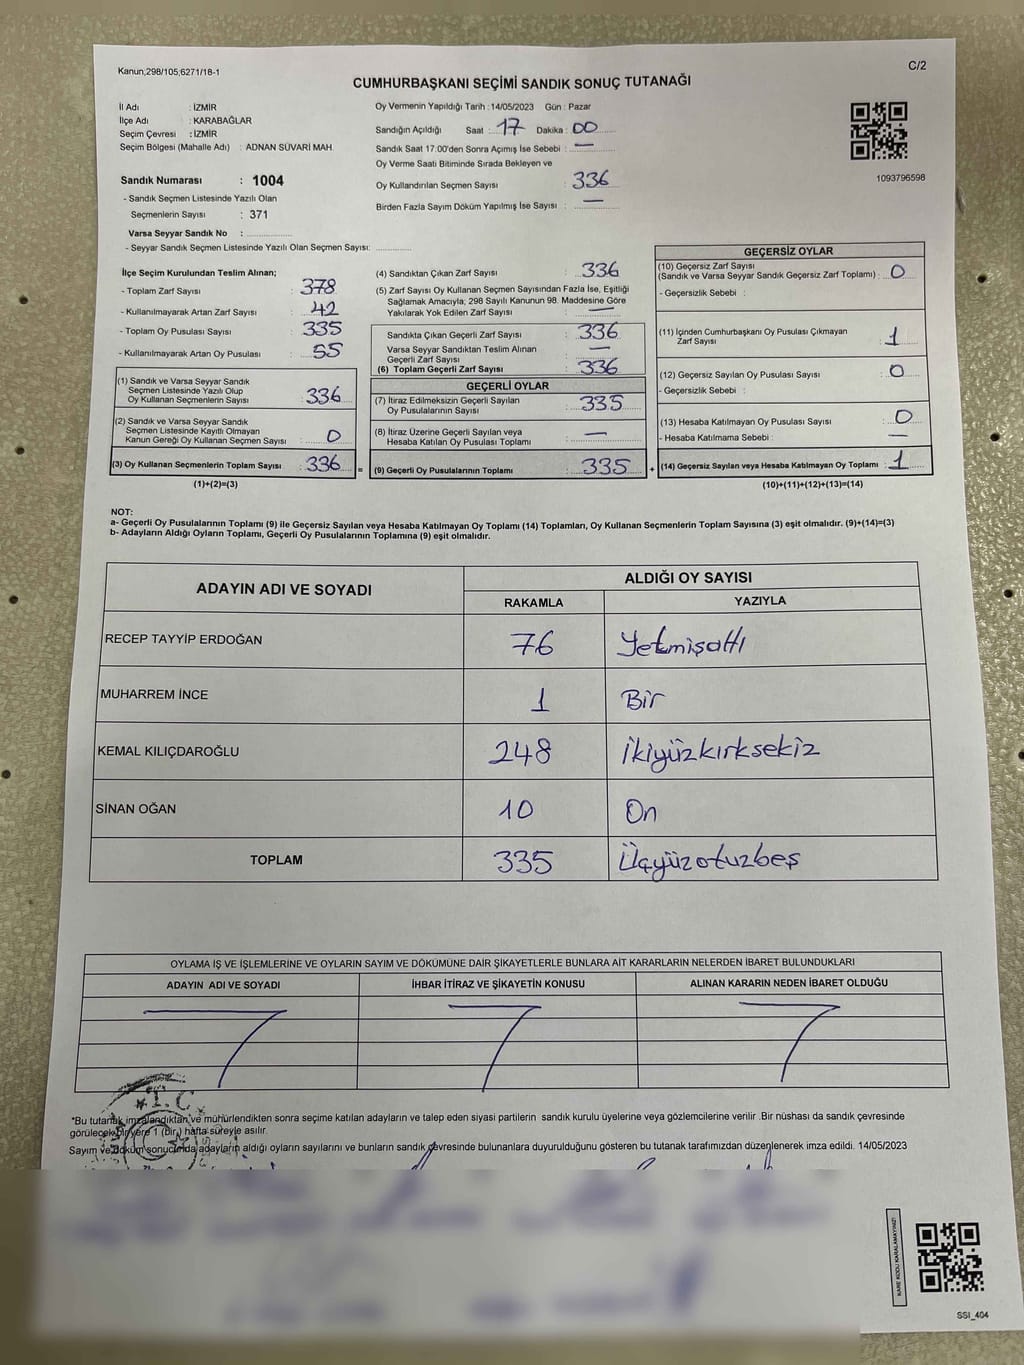 Kanun;298/105;6271/18-1
C/2
CUMHURBAŞKANI SEÇİMİ SANDIK SONUÇ TUTANAĞI
İl Adı : İZMİR
İlçe Adı : KARABAĞLAR
Seçim Çevresi : İZMİR
Seçim Bölgesi (Mahalle Adı) : ADNAN SÜVARİ MAH.
Sandık Numarası : 1004
- Sandık Seçmen Listesinde Yazılı Olan
Seçmenlerin Sayısı : 371
Varsa Seyyar Sandık No :
- Seyyar Sandık Seçmen Listesinde Yazılı Olan Seçmen Sayısı:
Oy Vermenin Yapıldığı Tarih : 14/05/2023 Gün : Pazar
Sandığın Açıldığı Saat : 17 Dakika : 00
Sandık Saat 17:00'den Sonra Açımış İse Sebebi : —
Oy Verme Saati Bitiminde Sırada Bekleyen ve
Oy Kullandırılan Seçmen Sayısı : 336
Birden Fazla Sayım Döküm Yapılmış İse Sayısı : —
1093796598
İlçe Seçim Kurulundan Teslim Alınan;
- Toplam Zarf Sayısı : 378
- Kullanılmayarak Artan Zarf Sayısı : 42
- Toplam Oy Pusulası Sayısı : 335
- Kullanılmayarak Artan Oy Pusulası : 55
(1) Sandık ve Varsa Seyyar Sandık
Seçmen Listesinde Yazılı Olup
Oy Kullanan Seçmenlerin Sayısı : 336
(2) Sandık ve Varsa Seyyar Sandık
Seçmen Listesinde Kayıtlı Olmayan
Kanun Gereği Oy Kullanan Seçmen Sayısı : 0
(3) Oy Kullanan Seçmenlerin Toplam Sayısı : 336 =
(1)+(2)=(3)
(4) Sandıktan Çıkan Zarf Sayısı : 336
(5) Zarf Sayısı Oy Kullanan Seçmen Sayısından Fazla İse, Eşitliği
Sağlamak Amacıyla; 298 Sayılı Kanunun 98. Maddesine Göre
Yakılarak Yok Edilen Zarf Sayısı : —
Sandıkta Çıkan Geçerli Zarf Sayısı : 336
Varsa Seyyar Sandıktan Teslim Alınan
Geçerli Zarf Sayısı : —
(6) Toplam Geçerli Zarf Sayısı : 336
GEÇERLİ OYLAR
(7) İtiraz Edilmeksizin Geçerli Sayılan
Oy Pusulalarının Sayısı : 335
(8) İtiraz Üzerine Geçerli Sayılan veya
Hesaba Katılan Oy Pusulası Toplamı : —
(9) Geçerli Oy Pusulalarının Toplamı : 335 +
GEÇERSİZ OYLAR
(10) Geçersiz Zarf Sayısı
(Sandık ve Varsa Seyyar Sandık Geçersiz Zarf Toplamı) : 0
- Geçersizlik Sebebi :
(11) İçinden Cumhurbaşkanı Oy Pusulası Çıkmayan
Zarf Sayısı : 1
(12) Geçersiz Sayılan Oy Pusulası Sayısı : 0
- Geçersizlik Sebebi :
(13) Hesaba Katılmayan Oy Pusulası Sayısı : 0
- Hesaba Katılmama Sebebi : —
(14) Geçersiz Sayılan veya Hesaba Katılmayan Oy Toplamı : 1
(10)+(11)+(12)+(13)=(14)
NOT:
a- Geçerli Oy Pusulalarının Toplamı (9) ile Geçersiz Sayılan veya Hesaba Katılmayan Oy Toplamı (14) Toplamları, Oy Kullanan Seçmenlerin Toplam Sayısına (3) eşit olmalıdır. (9)+(14)=(3)
b- Adayların Aldığı Oyların Toplamı, Geçerli Oy Pusulalarının Toplamına (9) eşit olmalıdır.
ADAYIN ADI VE SOYADI ALDIĞI OY SAYISI
RAKAMLA YAZIYLA
RECEP TAYYİP ERDOĞAN 76 Yetmişaltı
MUHARREM İNCE 1 Bir
KEMAL KILIÇDAROĞLU 248 İkiyüzkırksekiz
SİNAN OĞAN 10 On
TOPLAM 335 Üçyüzotuzbeş
OYLAMA İŞ VE İŞLEMLERİNE VE OYLARIN SAYIM VE DÖKÜMÜNE DAİR ŞİKAYETLERLE BUNLARA AİT KARARLARIN NELERDEN İBARET BULUNDUKLARI
ADAYIN ADI VE SOYADI İHBAR İTİRAZ VE ŞİKAYETİN KONUSU ALINAN KARARIN NEDEN İBARET OLDUĞU
T.C
*Bu tutanak imzalandıktan ve mühürlendikten sonra seçime katılan adayların ve talep eden siyasi partilerin sandık kurulu üyelerine veya gözlemcilerine verilir .Bir nüshası da sandık çevresinde
görülecek bir yere 1 (Bir) hafta süreyle asılır.
Sayım ve döküm sonucunda adayların aldığı oyların sayılarını ve bunların sandık çevresinde bulunanlara duyurulduğunu gösteren bu tutanak tarafımızdan düzenlenerek imza edildi. 14/05/2023
KARE KODU KARALAMAYINIZ!
SSI_404